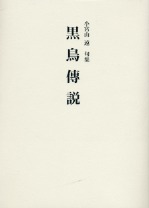 小宮山遠 句集
黒鳥傳説